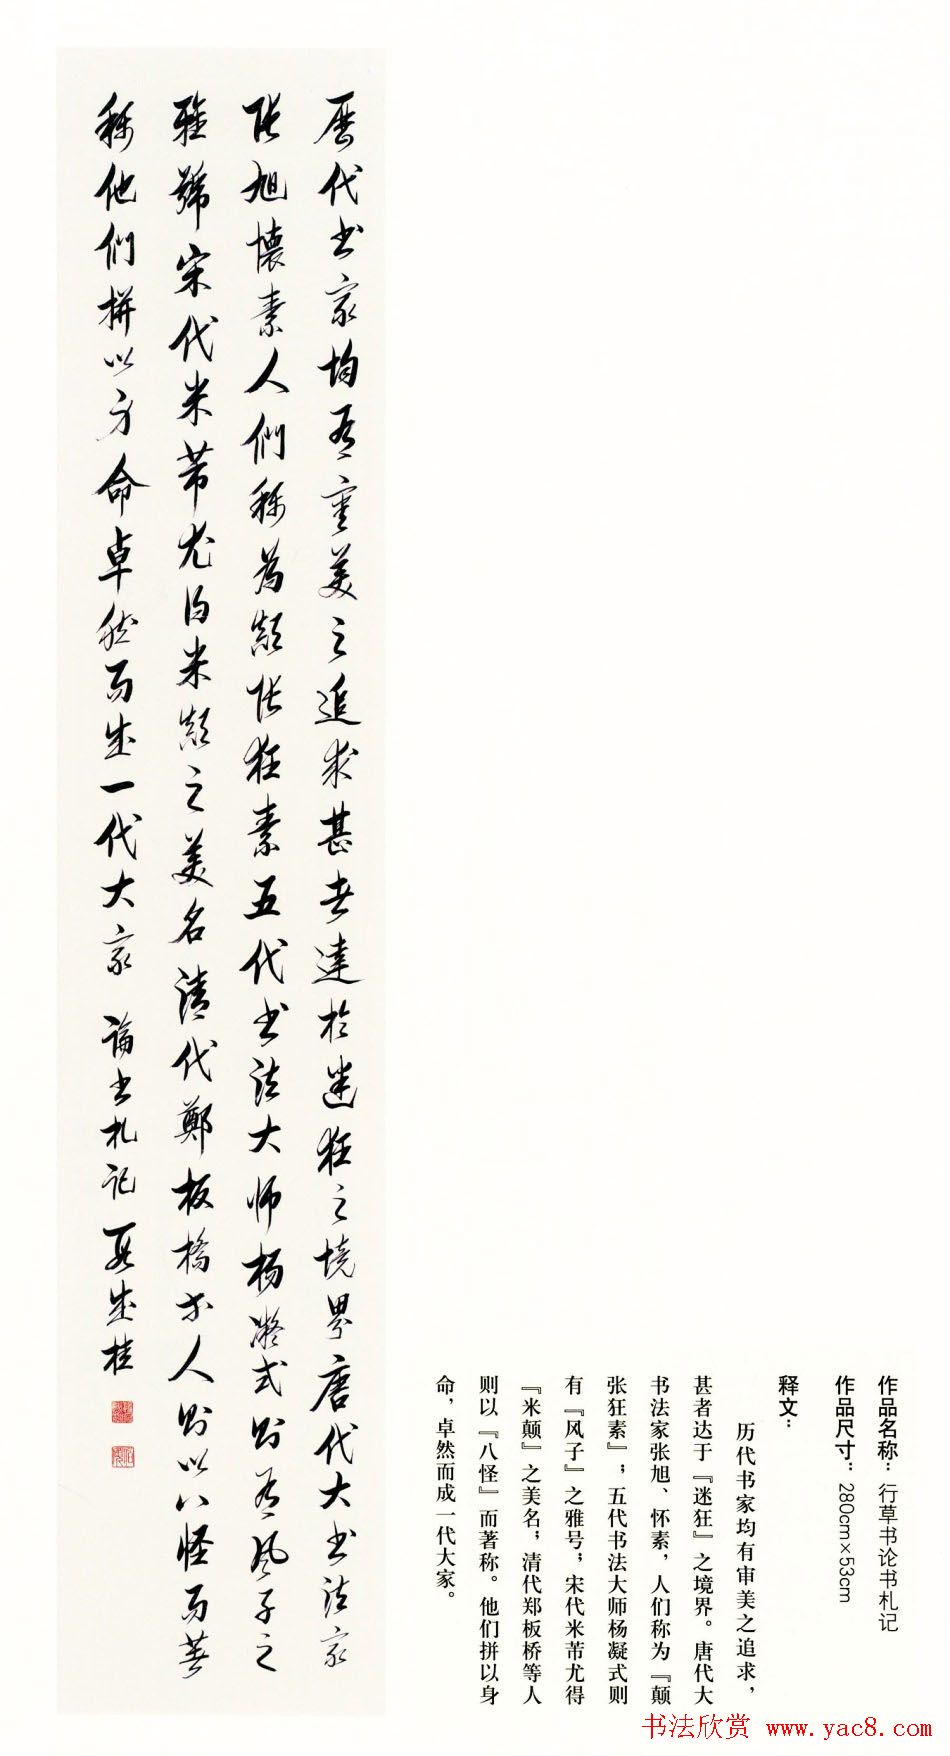 歷代书家均有審美之追求甚者達於迷狂之境界唐代大书法家
张旭懷素人們称为颠张狂素五代书法大师杨凝式则有风子之
雅號宋代米芾尤得米颠之美名清代鄭板橋等人则以八怪而著
称他們拼以身命卓然而成一代大家 論书札记 段成桂
作品名称：行草书论书札记
作品尺寸：280cm×53cm
释文：
历代书家均有审美之追求，
甚者达于『迷狂』之境界。唐代大
书法家张旭、怀素，人们称为『颠
张狂素』；五代书法大师杨凝式则
有『风子』之雅号；宋代米芾尤得
『米颠』之美名；清代郑板桥等人
则以『八怪』而著称。他们拼以身
命，卓然而成一代大家。
书法欣赏 www.yac8.com